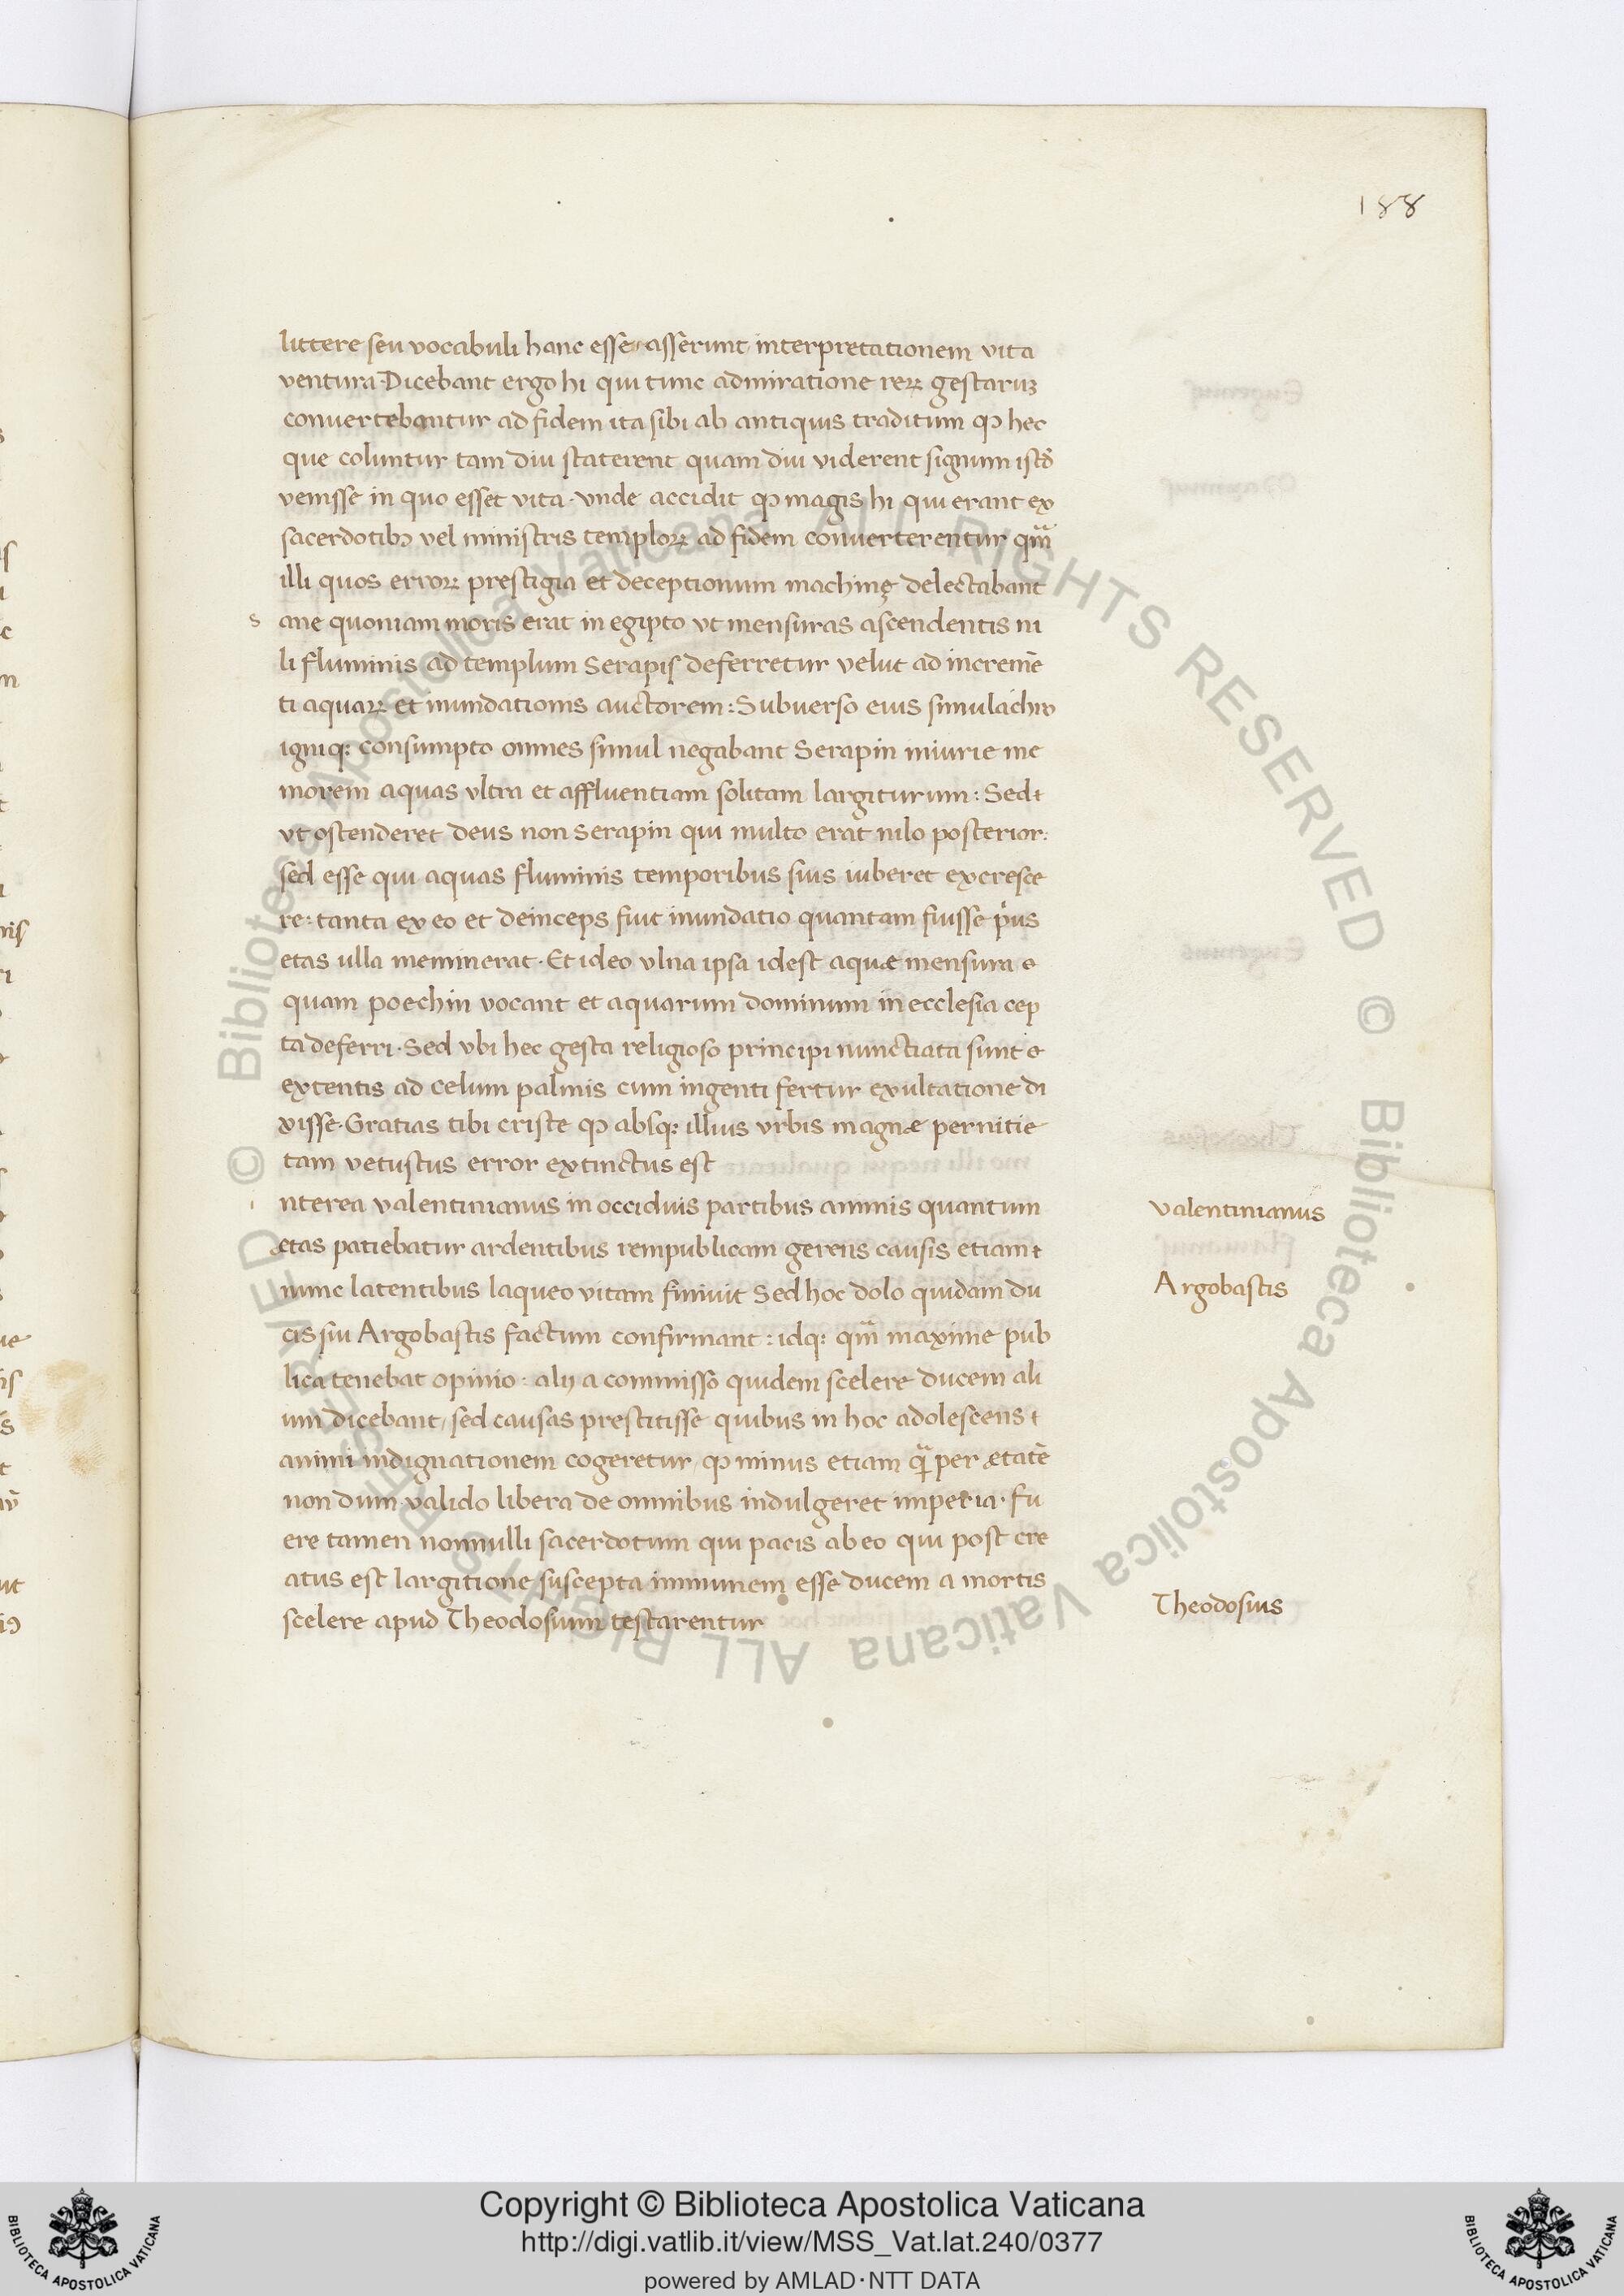 188
littere seu vocabuli hanc esse asserunt interpretationem vita
ventura. Dicebant ergo hi qui tunc admiratione reꝝ gestaruꝫ
convertebantur ad fidem ita sibi ab antiquis traditum ꝙ hec
que coluntur tam diu staterent quam diu viderent signum istđ
venisse in quo esset vita. vnde accidit ꝙ magis hi qui erant ex
sacerdotibꝫ vel ministris temploꝝ ad fidem converterentur qm̃
illi quos erroꝝ prestigia et deceptionum machinę delectabant
s ane quoniam moris erat in egipto vt mensuras ascendentis ni
li fluminis ad templum Serapis deferretur velut ad incremē
ti aquaꝝ et inundationis auctorem: Subverso eius simulachro
igniqꝫ consumpto omnes simul negabant Serapin iniurie me
morem aquas vltra et affluentiam solitam largiturum: Sed
vt ostenderet deus non serapin qui multo erat nilo posterior:
sed esse qui aquas fluminis temporibus suis iuberet excresce
re: tanta ex eo et deinceps fuit inundatio quantam fuisse pͥus
etas ulla meminerat. Et ideo vlna ipsa idest aquæ mensura
quam poechin vocant et aquarum dominum in ecclesia cep
ta deferri. Sed vbi hec gesta religioso principi nunctiata sunt
extentis ad celum palmis cum ingenti fertur exultatione di
xisse. Gratias tibi criste ꝙ absqꝫ illius vrbis magnæ pernitie
tam vetustus error extinctus est
i nterea valentinianus in occiduis partibus animis quantum
ætas patiebatur ardentibus rempublicam gerens causis etiam
nunc latentibus laqueo vitam finivit Sed hoc dolo quidam du
cis sui Argobastis factum confirmant: idqꝫ qm̃ maxime pub
lica tenebat opinio: alij a commisso quidem scelere ducem ali
um dicebant, sed causas prestitisse quibus in hoc adolescens
animi indignationem cogeretur, ꝙ minus etiam qͣ per ætatē
non dum valido libera de omnibus indulgeret imperia. fu
ere tamen nonnulli sacerdotum qui pacis ab eo qui post cre
atus est largitione suscepta immunem esse ducem a mortis
scelere apud Theodosium testarentur
valentinianus
Argobastis
Theodosius
© Biblioteca Apostolica Vaticana ALL RIGHTS RESERVED © Biblioteca Apostolica Vaticana ALL RIGHTS RESERVED
Copyright © Biblioteca Apostolica Vaticana
http://digi.vatlib.it/view/MSS_Vat.lat.240/0377
powered by AMLAD·NTT DATA
BIBLIOTECA APOSTOLICA VATICANA
BIBLIOTECA APOSTOLICA VATICANA